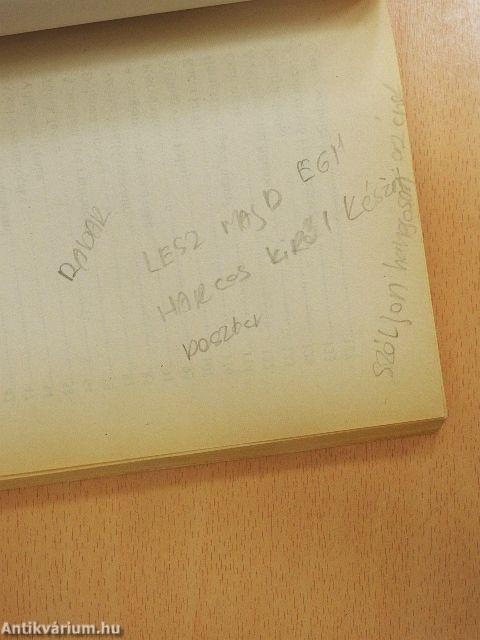 RADAR
LESZ MAJD EGY
HARCOS KIRŐL KÉSZÜL
poszter
szóljon hangosan az ének
Antikvárium.hu